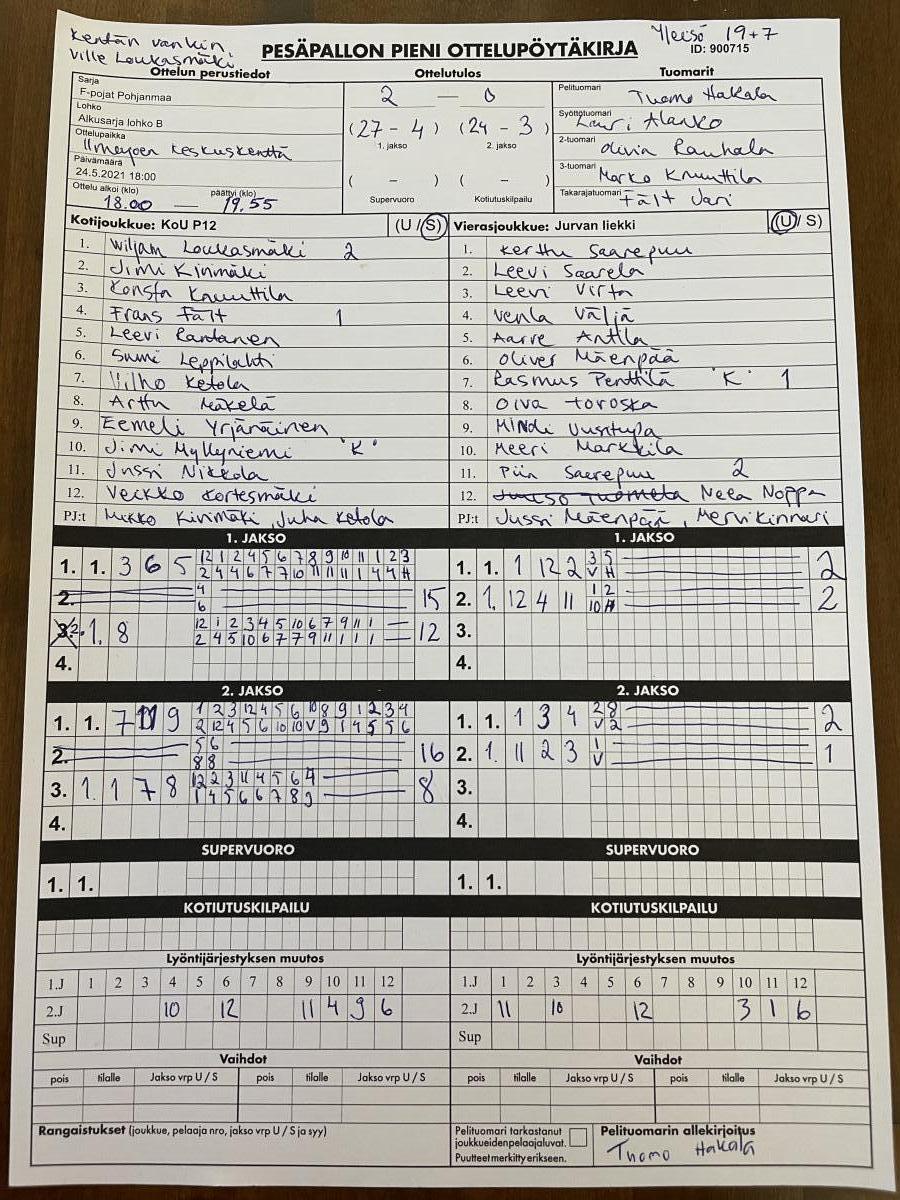 Kentän vankin,
Ville Loukasmäki
Yleisö 19+7
PESÄPALLON PIENI OTTELUPÖYTÄKIRJA
ID: 900715
Ottelun perustiedot Ottelutulos Tuomarit
Sarja
F-pojat Pohjanmaa
Lohko
Alkusarja lohko B
Ottelupaikka
Ilmajoen Keskuskenttä
Päivämäärä
24.5.2021 18:00
Ottelu alkoi (klo) päättyi (klo)
18.00 — 19.55
2 — 0
(27 - 4) (24 - 3)
1. jakso 2. jakso
( - ) ( - )
Supervuoro Kotiutuskilpailu
Pelituomari Tuomo Hakala
Syöttötuomari Lauri Alanko
2-tuomari Olivia Rauhala
3-tuomari Marko Knuuttila
Takarajatuomari Fält Jari
Kotijoukkue: KoU P12 (U / S)
1. Wiljam Loukasmäki 2
2. Jimi Kivimäki
3. Konsta Knuuttila
4. Frans Fält 1
5. Leevi Rantanen
6. Sumi Leppilahti
7. Vilho Ketola
8. Arttu Mäkelä
9. Eemeli Yrjänäinen
10. Jimi Myllyniemi "K"
11. Jussi Nikkola
12. Veikko Kortesmäki
PJ:t Mikko Kivimäki, Juha Ketola
Vierasjoukkue: Jurvan liekki (U / S)
1. Kerttu Saarepuu
2. Leevi Saarela
3. Leevi Virta
4. Venla Väljä
5. Aarre Anttila
6. Oliver Mäenpää
7. Rasmus Penttilä "K" 1
8. Oiva Toroska
9. Mindi Uusitupa
10. Meeri Markkila
11. Piia Saarepuu 2
12. Neea Noppa
PJ:t Jussi Mäenpää, Mervi Kinnari
1. JAKSO
1. 1. 3 6 5 12 1 2 4 5 6 7 8 9 10 11 1 2 3
2 4 4 6 7 7 10 11 11 11 1 4 4 H
2. 4 15
6
3. 2. 1. 8 12 1 2 3 4 5 10 6 7 9 11 1 12
2 4 5 10 6 7 7 9 11 1 1 1
4.
1. JAKSO
1. 1. 1 12 2 3 5 2
V H
2. 1. 12 4 11 1 2 2
10 H
3.
4.
2. JAKSO
1. 1. 7 9 1 2 3 12 4 5 6 10 8 9 1 2 3 4
2 12 4 5 6 10 10 V 9 1 4 5 5 6
2. 5 6 16
8 8
3. 1. 1 7 8 12 2 3 11 4 5 6 4 8
1 4 5 6 6 7 8 9
4.
2. JAKSO
1. 1. 1 3 4 2 8 2
V 2
2. 1. 11 2 3 1 1
V
3.
4.
SUPERVUORO SUPERVUORO
1. 1. 1. 1.
KOTIUTUSKILPAILU KOTIUTUSKILPAILU
Lyöntijärjestyksen muutos Lyöntijärjestyksen muutos
1.J 1 2 3 4 5 6 7 8 9 10 11 12 1.J 1 2 3 4 5 6 7 8 9 10 11 12
2.J 10 12 11 4 9 6 2.J 11 10 12 3 1 6
Sup Sup
Vaihdot Vaihdot
pois tilalle Jakso vrp U / S pois tilalle Jakso vrp U / S pois tilalle Jakso vrp U / S pois tilalle Jakso vrp U / S
Rangaistukset (joukkue, pelaaja nro, jakso vrp U / S ja syy)
Pelituomari tarkastanut
joukkueiden pelaajaluvat.
Puutteet merkitty erikseen.
Pelituomarin allekirjoitus
Tuomo Hakala